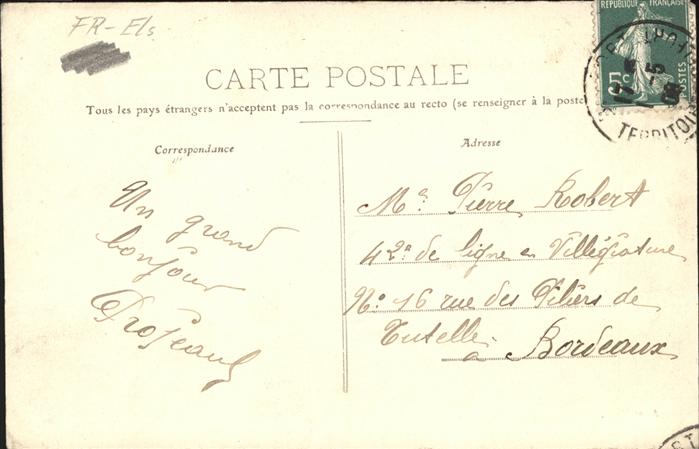 FR-Els
REPUBLIQUE FRANÇAISE
5c
POSTES
BELFORT
17 -5
08
TERRITOI
CARTE POSTALE
Tous les pays étrangers n'acceptent pas la correspondance au recto (se renseigner à la poste
Correspondance
Adresse
Un grand
bonjour
Mr. Pierre Robert
42e de ligne en Villégiature
No 16 rue des Piliers de
Tutelle
à Bordeaux
RT